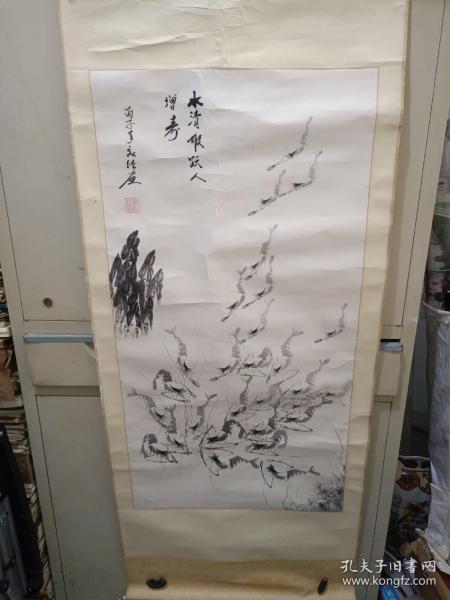 水清虾跃人
增寿
丙子年
孔夫子旧书网
www.kongfz.com